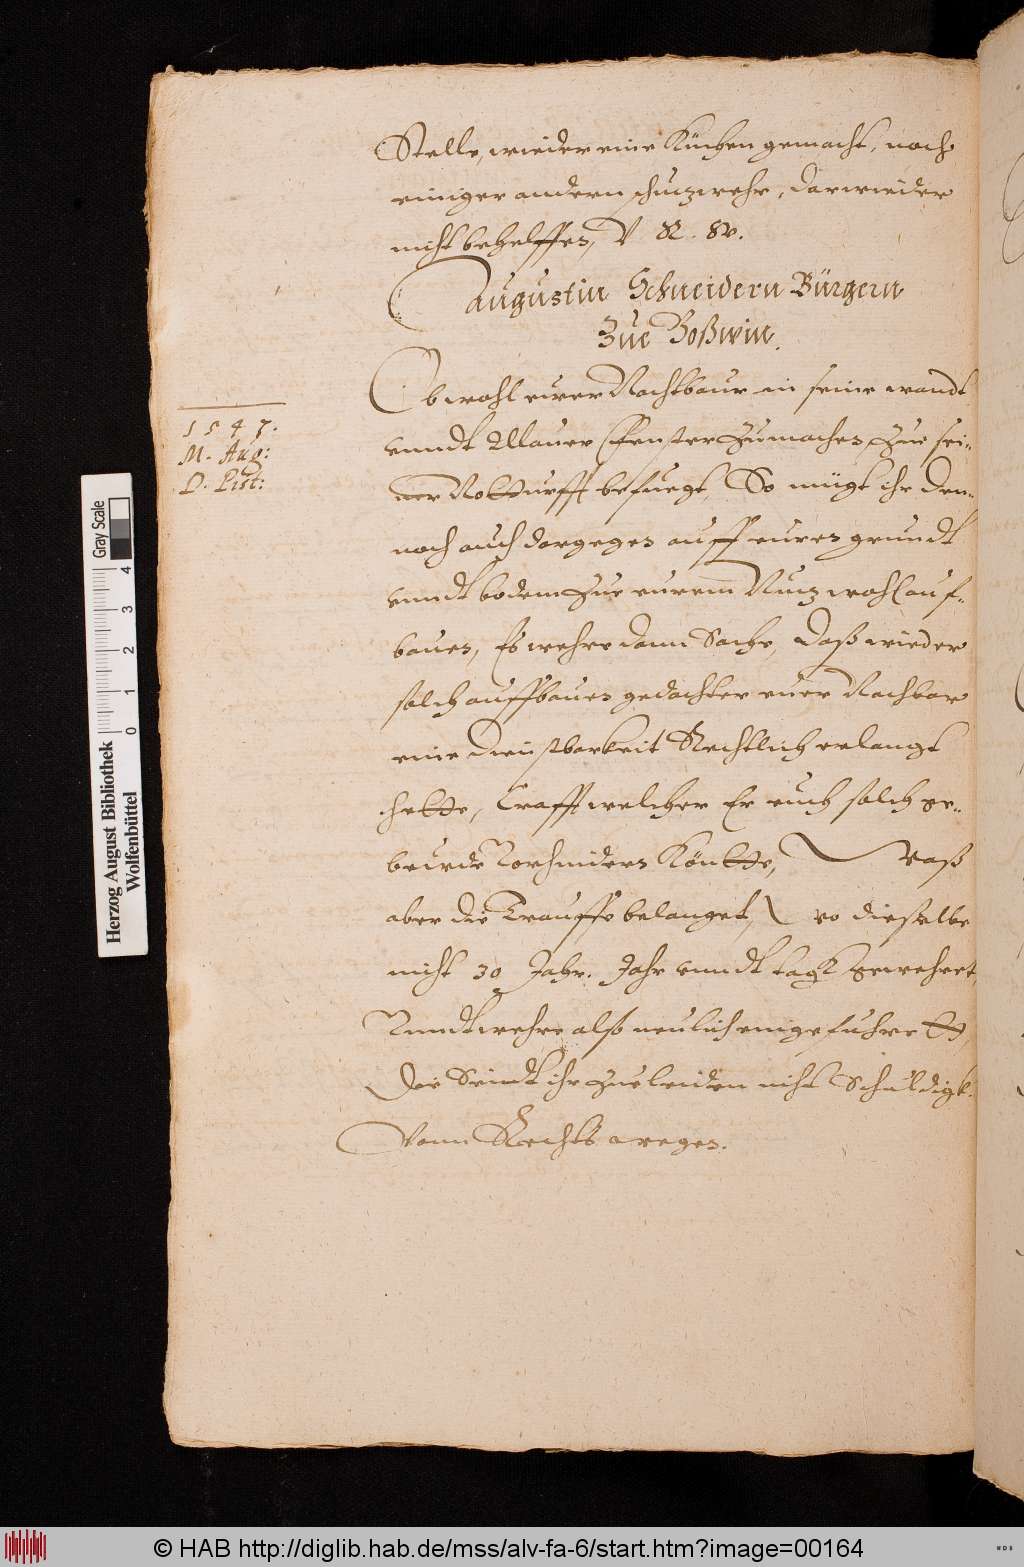 Stelle, wieder eine Küchen gemacht, noch
einiger andern schuzwehr, darwieder
nicht behelffen, V R. W.
Augustin Schneidern Bürgern
Zue Boßwin.
Obwohl ewer Nachtbaur in seine wandt
1547.
M. Aug:
D. Pist:
unndt Mauer Fenster zumachen, zue sei-
ner Notturfft befuegt, So mügt ihr den-
noch auch dargegen auff euren grundt
unndt bodem zue eurem Nuz wohl auf-
bauen, Es wehre dann Sache, daß wieder
solch auffbauen gedachter euer Nachbar
eine dienstbarkeit Rechtlich erlangt
hette, Crafft welcher Er euch solch ge-
beude Vorhindern Köntte, Waß
aber die Trauffe belanget, wo dieselbe
nicht 30 Jahr. Jahr unndt tagk gewehret,
Vnndt wehre also neulich eingefuhrett,
Die Seindt ihr zueleiden nicht Schuldigk.
Vonn Rechts wegen.
Herzog August Bibliothek
Wolfenbüttel
0 1 2 3 4
Gray Scale
© HAB http://diglib.hab.de/mss/alv-fa-6/start.htm?image=00164